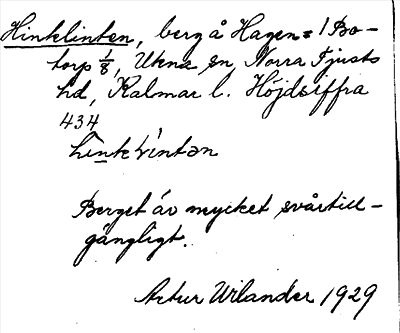 Hinklinten, berg å Hagen = 1 Bo-
torp 1/8, Ukna sn Norra Tjusts
hd, Kalmar l. Höjdsiffra
434
Berget är mycket svårtill-
gängligt.
Artur Wilander 1929